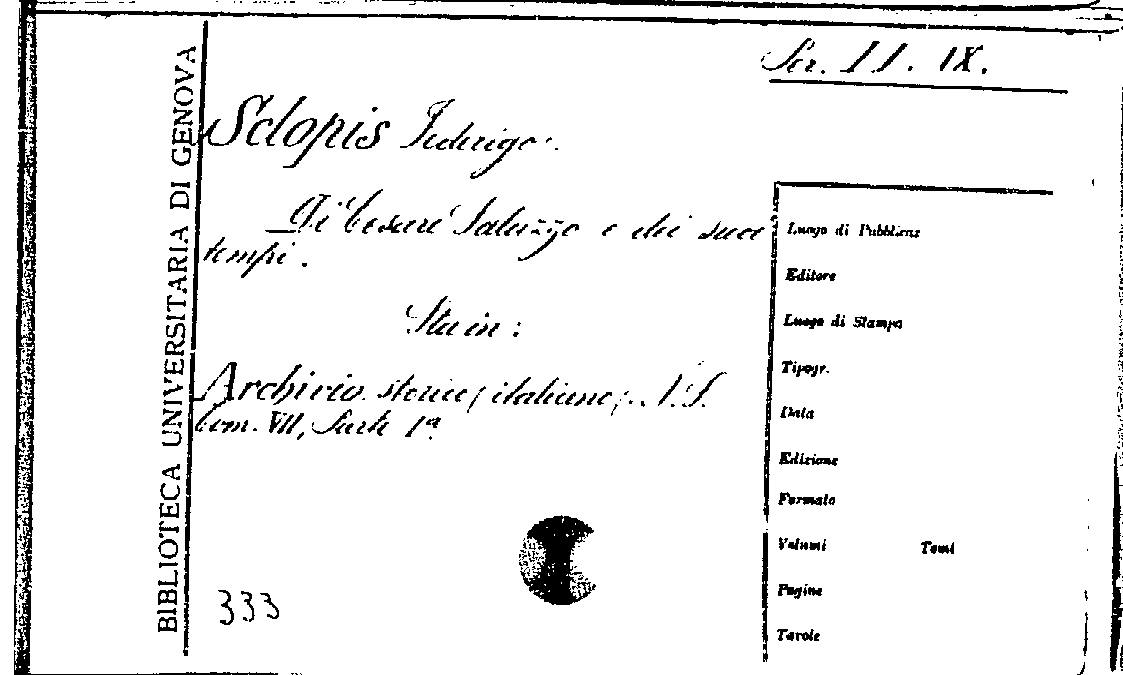 Ser. II. IX.
BIBLIOTECA UNIVERSITARIA DI GENOVA
Sclopis Federigo.
Di Cesare Saluzzo e dei suoi
tempi.
Sta in:
Archivio storico italiano, N. S.
Tom. VII, Parte 1ª
Luogo di Pubblicaz
Editore
Luogo di Stampa
Tipogr.
Data
Edizione
Formato
Volumi Tomi
Pagine
Tavole
333